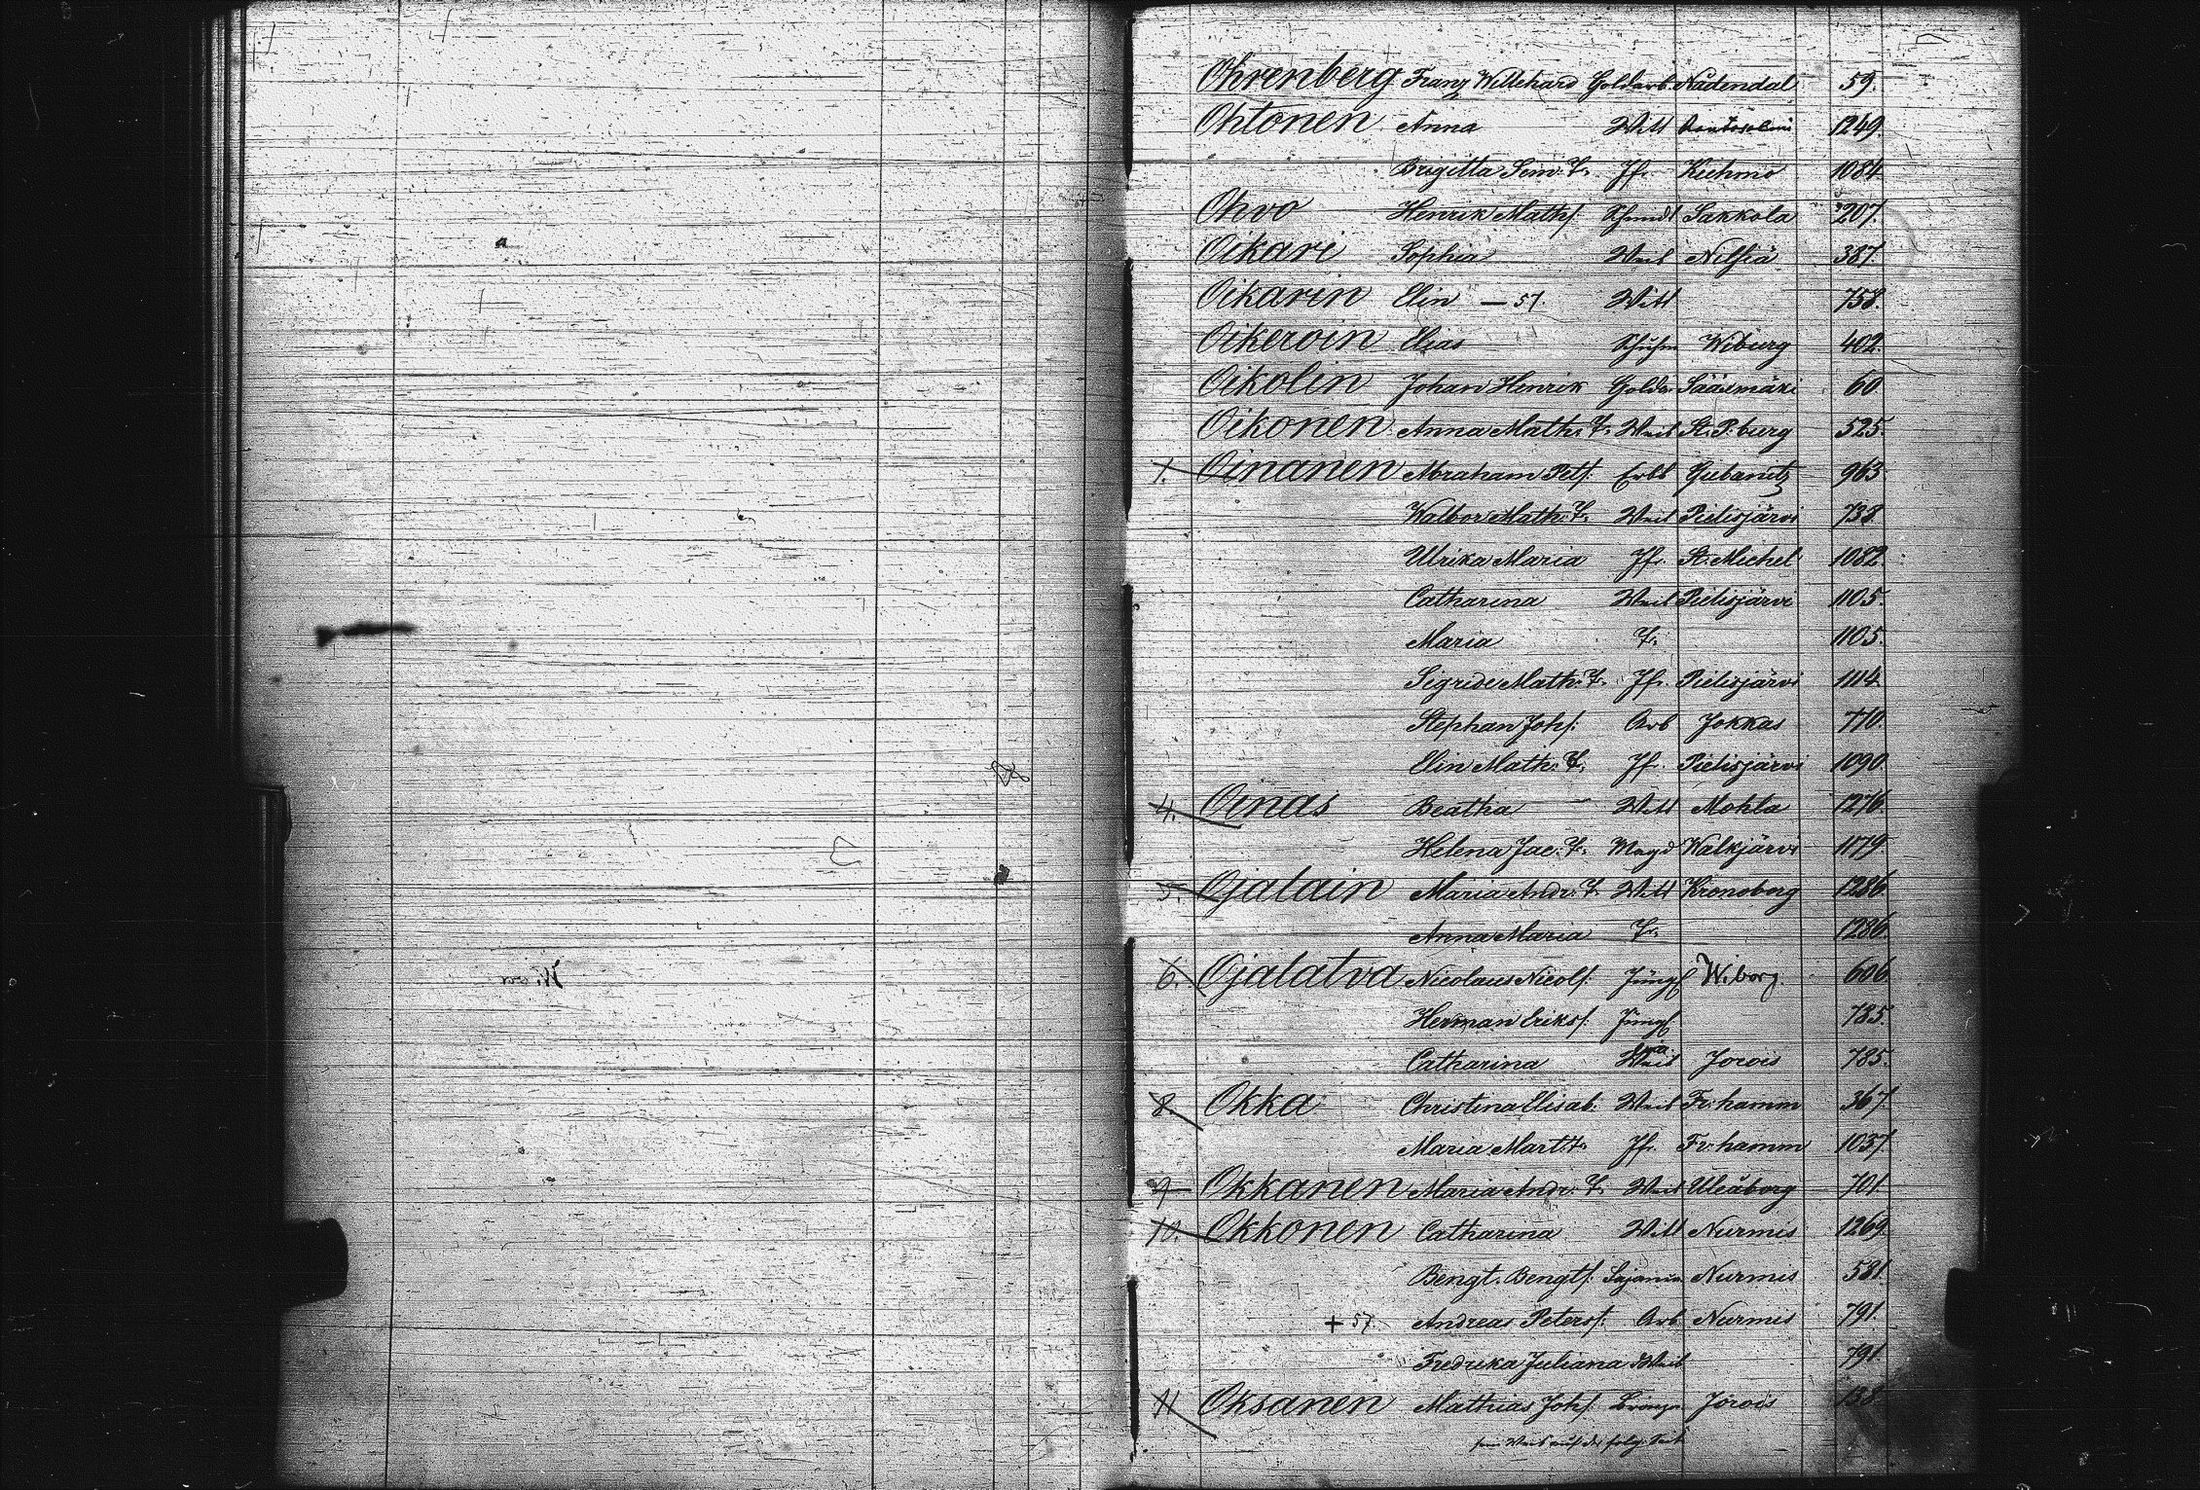 Ohrenberg Franz Willehard Goldarb. Nådendal 59.
Ohtonen Anna Witt 1249.
Brigitta Sim. T. Jf. Kuhmo 1084.
Ohvo Henrik Maths. Schmdt Sakkola 207.
Oikari Sophia Weib Nilsiä 387.
Oikarin Elin — 57. Witt 758.
Oikeroin Elias Schuhm Wiburg 402.
Oikolin Johan Henrik Golda Sääsmäki 60.
Oikonen Anna Math. T. Weib St. P. burg 525.
1. Oinanen Abraham Pets. Erbb Gubanitz 963.
Walbor Math. T. Weib Pielisjärvi 738.
Ulrika Maria Jf. St. Michel 1082.
Catharina Weib Pielisjärvi 1105.
Maria T. 1105.
Sigrid Math. T. Jf. Pielisjärvi 1114.
Stephan Johs. Arb Jokkas 710.
Elin Math. T. Jf. Pielisjärvi 1090.
4. Oinas Beatha Witt Mohla 1276.
Helena Jac. T. Magd Walkjärvi 1179.
5. Ojalain Maria Andr. T. Witt Kronoborg 1286.
Anna Maria T. 1286.
6. Ojalatva Nicolaus Nicols. Jüngl Wiborg. 606.
Herman Eriks. Jüngl 785.
Catharina Weib Jorois 785.
8. Okka Christina Elisab. Weib Fr: hamm 367.
Maria Mart. T. Jf. Fr: hamm 1037.
9. Okkanen Maria Andr. T. Weib Uleåborg 701.
10. Okkonen Catharina Witt Nurmis 1269.
Bengt. Bengts. Nurmis 581.
+ 57. Andreas Peters. Arb Nurmis 791.
Fredrika Juliana Weib 791.
11 Oksanen Mathias Johs. Jorois 138.
sein Weib auf der folg. Seite